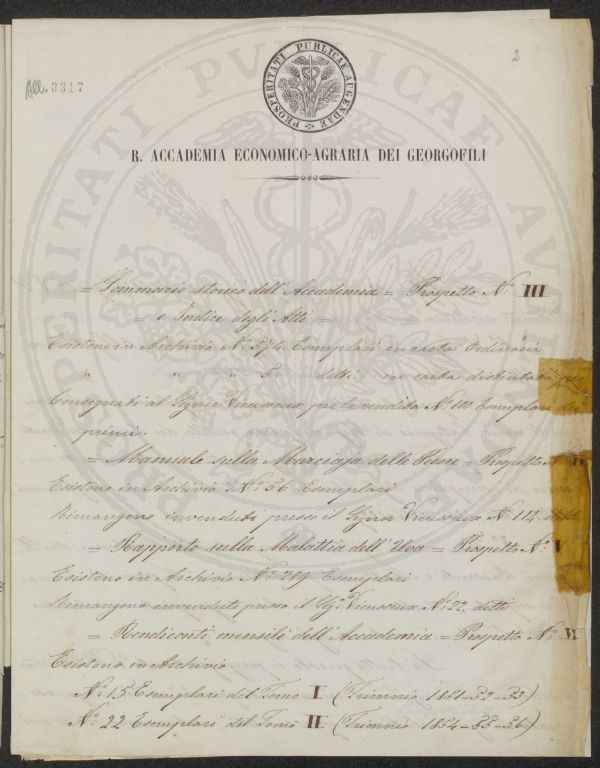 2
All. 3317
PROSPERITATI PUBLICAE AUGENDAE
R. ACCADEMIA ECONOMICO-AGRARIA DEI GEORGOFILI
= Sommario storico dell'Accademia = Prospetto N.º III
= e Indice degli Atti =
Esistono in Archivio N.º Esemplari in carta Ordinaria
" " " detti in carta distinta
Consegnati al Sig.r Vieusseux per la vendita N.º 100 Esemplari de
primi.
= Manuale sulla Marciaja delle Pecore = Prospetto N.º
Esistono in Archivio N.º 56 Esemplari
Rimangono invenduti presso il Sig.r Vieusseux N.º 114 detti
= Rapporto sulla Malattia dell'Uva = Prospetto N.º V
Esistono in Archivio N.º 289 Esemplari
Rimangono invenduti presso il Sig.r Vieusseux N.º 22 detti
= Rendiconti mensili dell'Accademia = Prospetto N.º VI
Esistono in Archivio
N.º 15 Esemplari del Tomo I (Triennio 1851-52-53)
N.º 22 Esemplari del Tomo II (Triennio 1854-55-56)